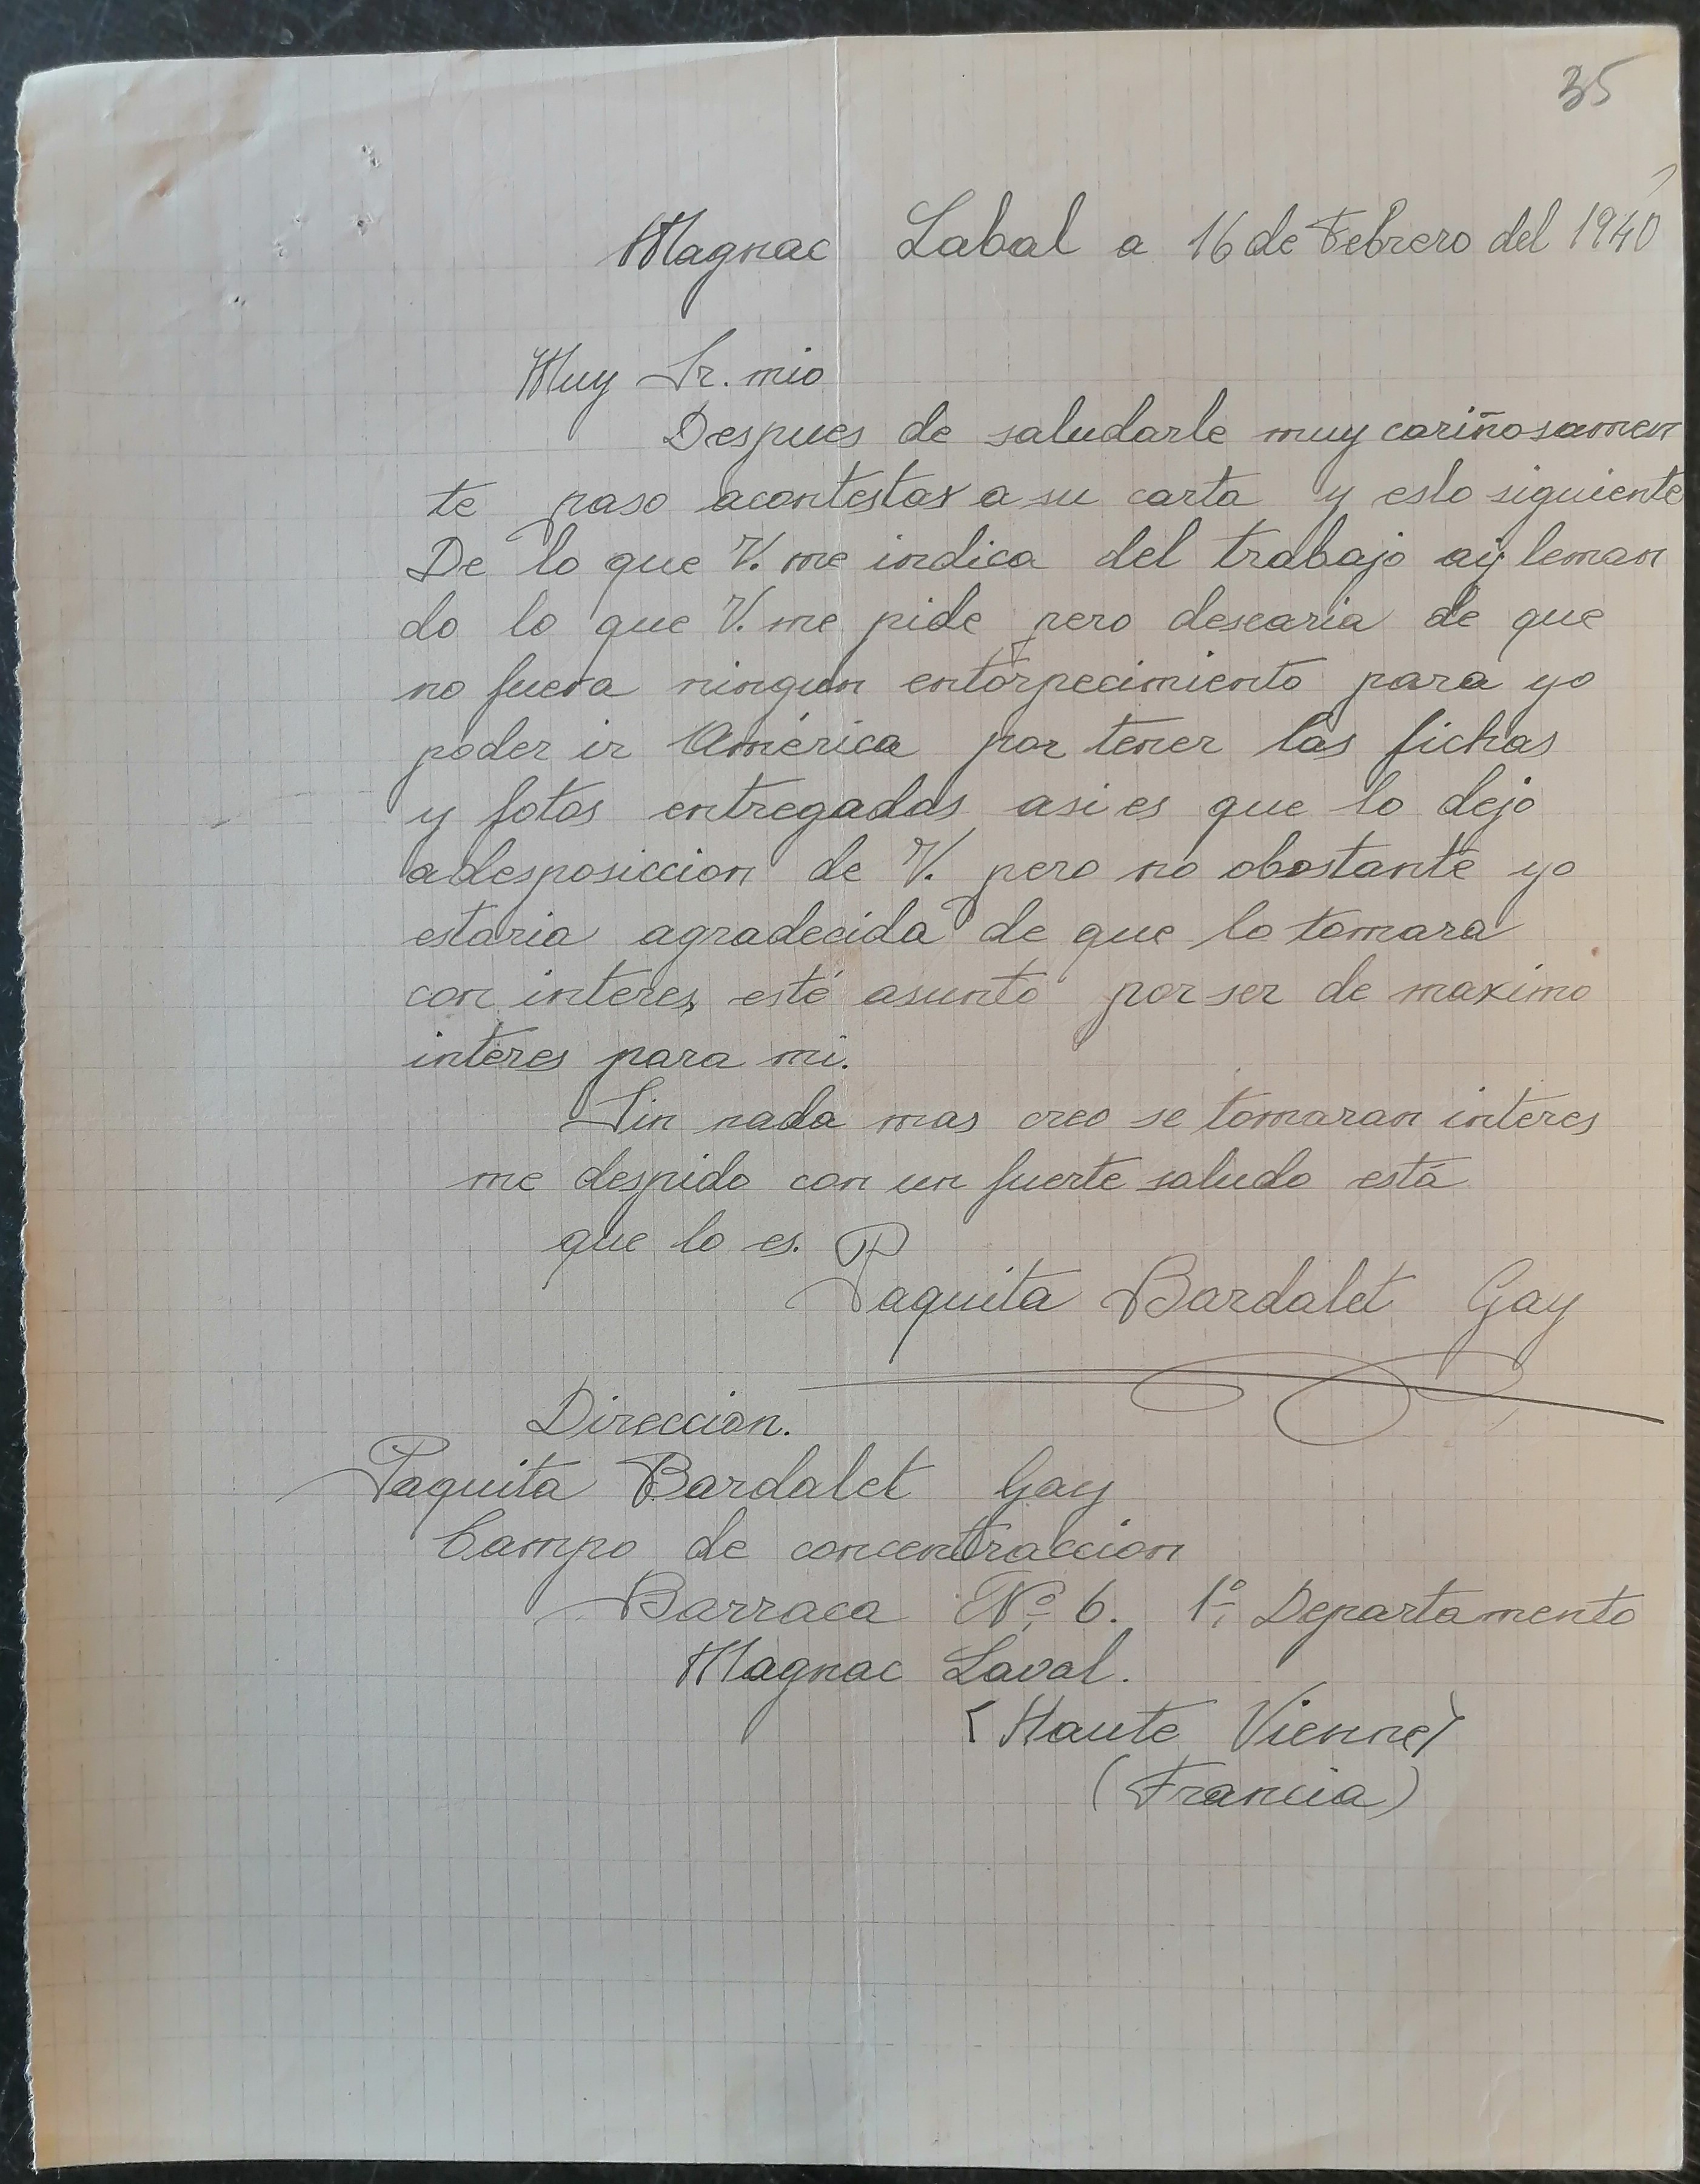 35
Magnac Labal a 16 de Febrero del 1940
Muy Sr. mio
Despues de saludarle muy cariñosamen
te paso acontestar a su carta y eslo siguiente
De lo que V. me indica del trabajo ay leman
do lo que V. me pide pero desearia de que
no fuera ningun entorpecimiento para yo
poder ir América por tener las fichas
y fotos entregadas asi es que lo dejo
adesposiccion de V. pero no obostante yo
estaria agradecida de que lo tomara
con interes, esté asunto por ser de maximo
interes para mi.
Sin nada mas creo se tomaran interes
me despido con un fuerte saludo está
que lo es.
Paquita Bardalet Gay
Direccion.
Paquita Bardalet Gay
Campo de concentraccion
Barraca Nº 6. 1º Departamento
Magnac Laval.
(Haute Vienne)
(Francia)